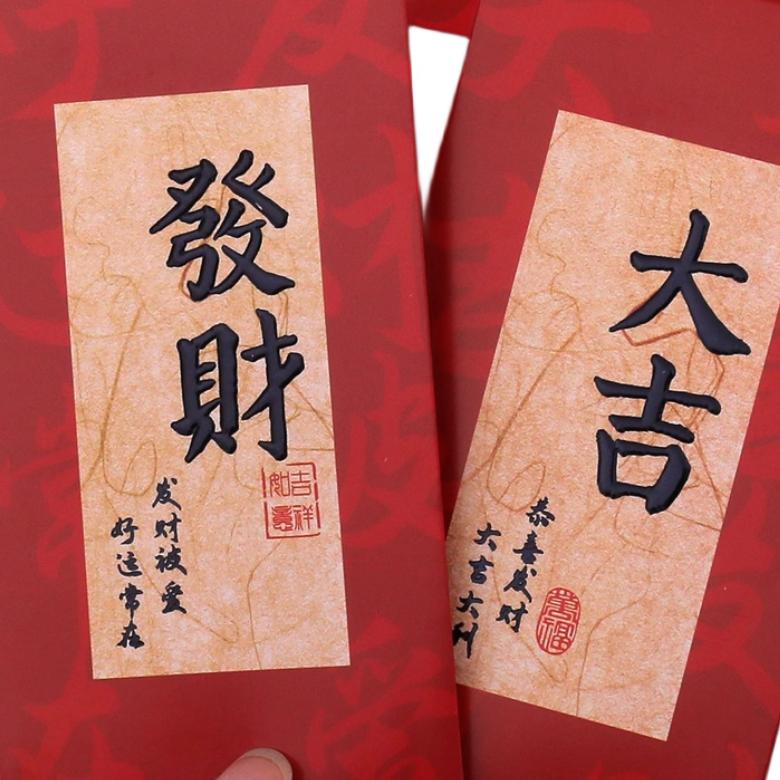 發財
发财被爱
好运常在
吉祥
如意
大吉
恭喜发财
大吉大利